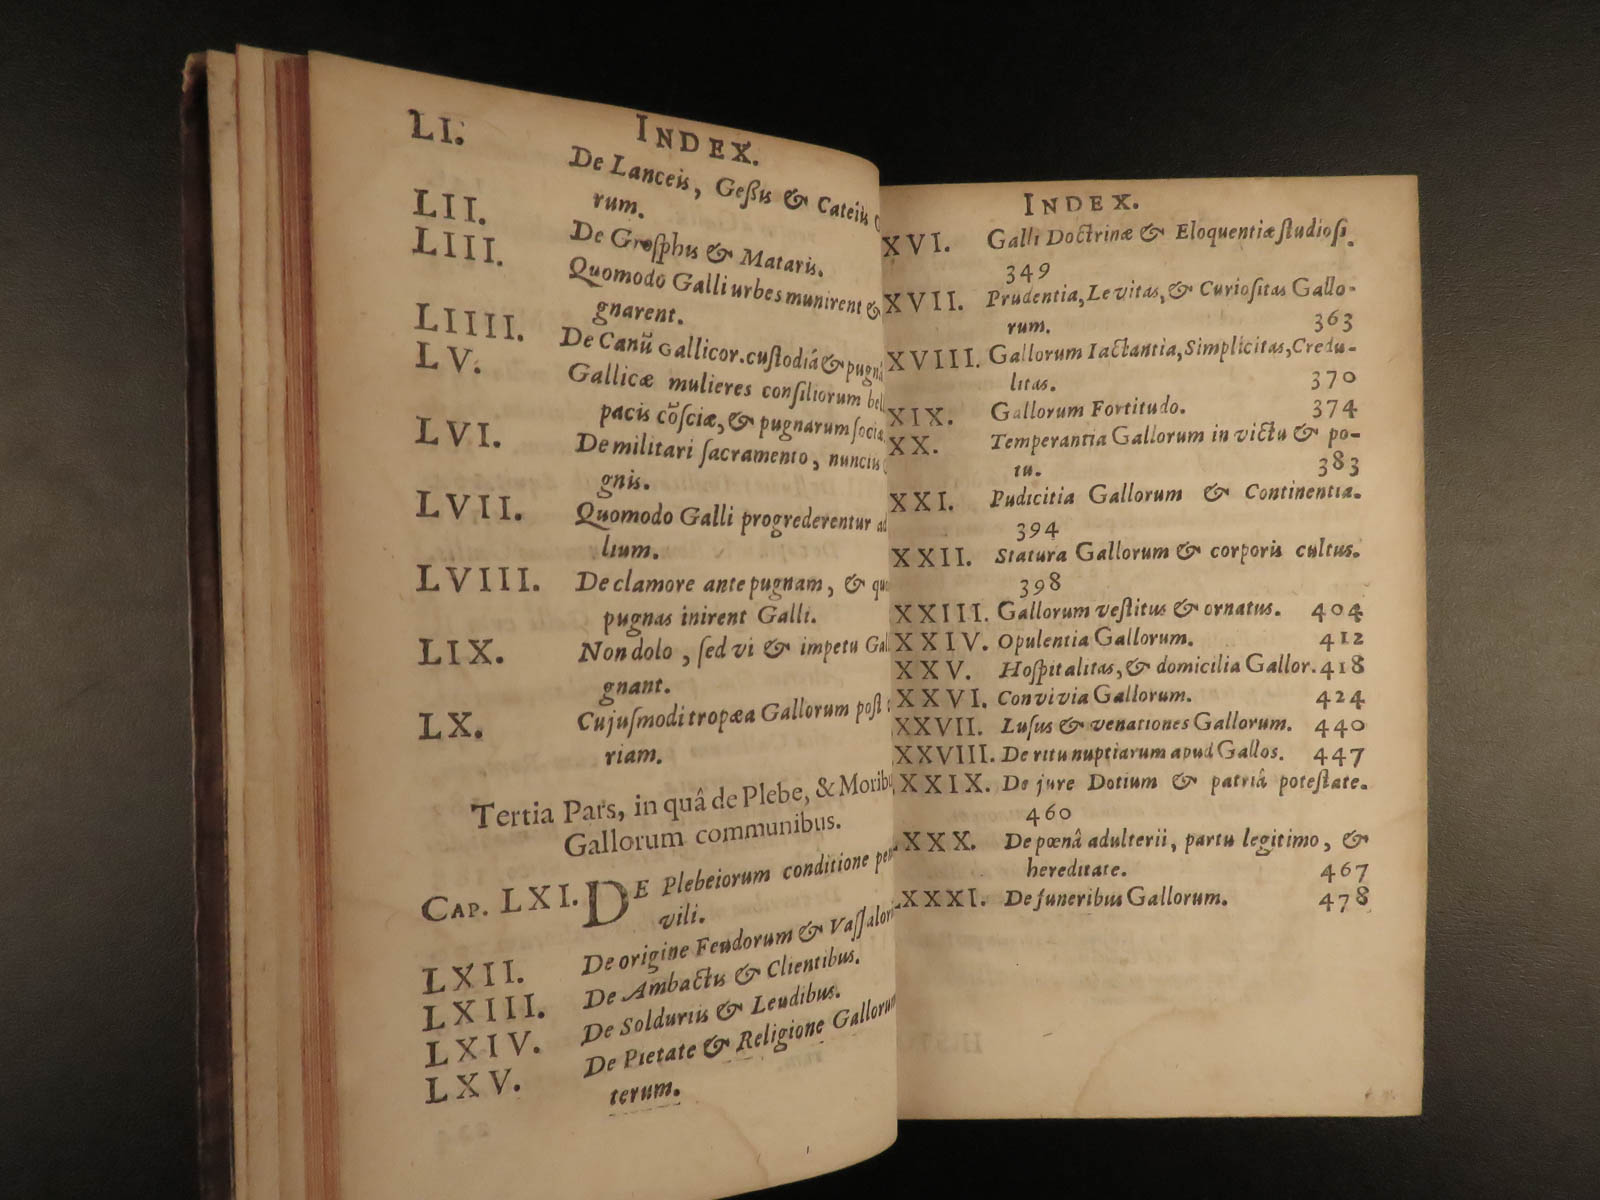 INDEX.
LI. De Lanceis, Geßis & Cateiis
rum.
LII. De Groſphis & Mataris.
LIII. Quomodo Galli urbes munirent &
gnarent.
LIIII. De Canũ Gallicor. cuſtodiâ & pugnâ
LV. Gallicæ mulieres conſiliorum
pacis cõſciæ, & pugnarum ſociæ.
LVI. De militari ſacramento, nunciis
gnis.
LVII. Quomodo Galli progrederentur ad
lium.
LVIII. De clamore ante pugnam, &
pugnas inirent Galli.
LIX. Non dolo, ſed vi & impetu
gnant.
LX. Cujuſmodi tropæa Gallorum poſt
riam.
Tertia Pars, in quâ de Plebe, & Moribu
Gallorum communibus.
CAP. LXI. DE Plebeiorum conditione
vili.
LXII. De origine Feudorum & Vaſſalor
LXIII. De Ambactis & Clientibus.
LXIV. De Solduriis & Leudibus.
LXV. De Pietate & Religione Gallorum
terum.
INDEX.
XVI. Galli Doctrinæ & Eloquentiæ ſtudioſi.
349
XVII. Prudentia, Levitas, & Curioſitas Gallo-
rum. 363
XVIII. Gallorum Iactantia, Simplicitas, Credu-
litas. 370
XIX. Gallorum Fortitudo. 374
XX. Temperantia Gallorum in victu & po-
tu. 383
XXI. Pudicitia Gallorum & Continentia.
394
XXII. Statura Gallorum & corporis cultus.
398
XXIII. Gallorum veſtitus & ornatus. 404
XXIV. Opulentia Gallorum. 412
XXV. Hoſpitalitas, & domicilia Gallor. 418
XXVI. Convivia Gallorum. 424
XXVII. Luſus & venationes Gallorum. 440
XXVIII. De ritu nuptiarum apud Gallos. 447
XXIX. De jure Dotium & patriâ poteſtate.
460
XXX. De pœnâ adulterii, partu legitimo, &
hereditate. 467
XXXI. De funeribus Gallorum. 478